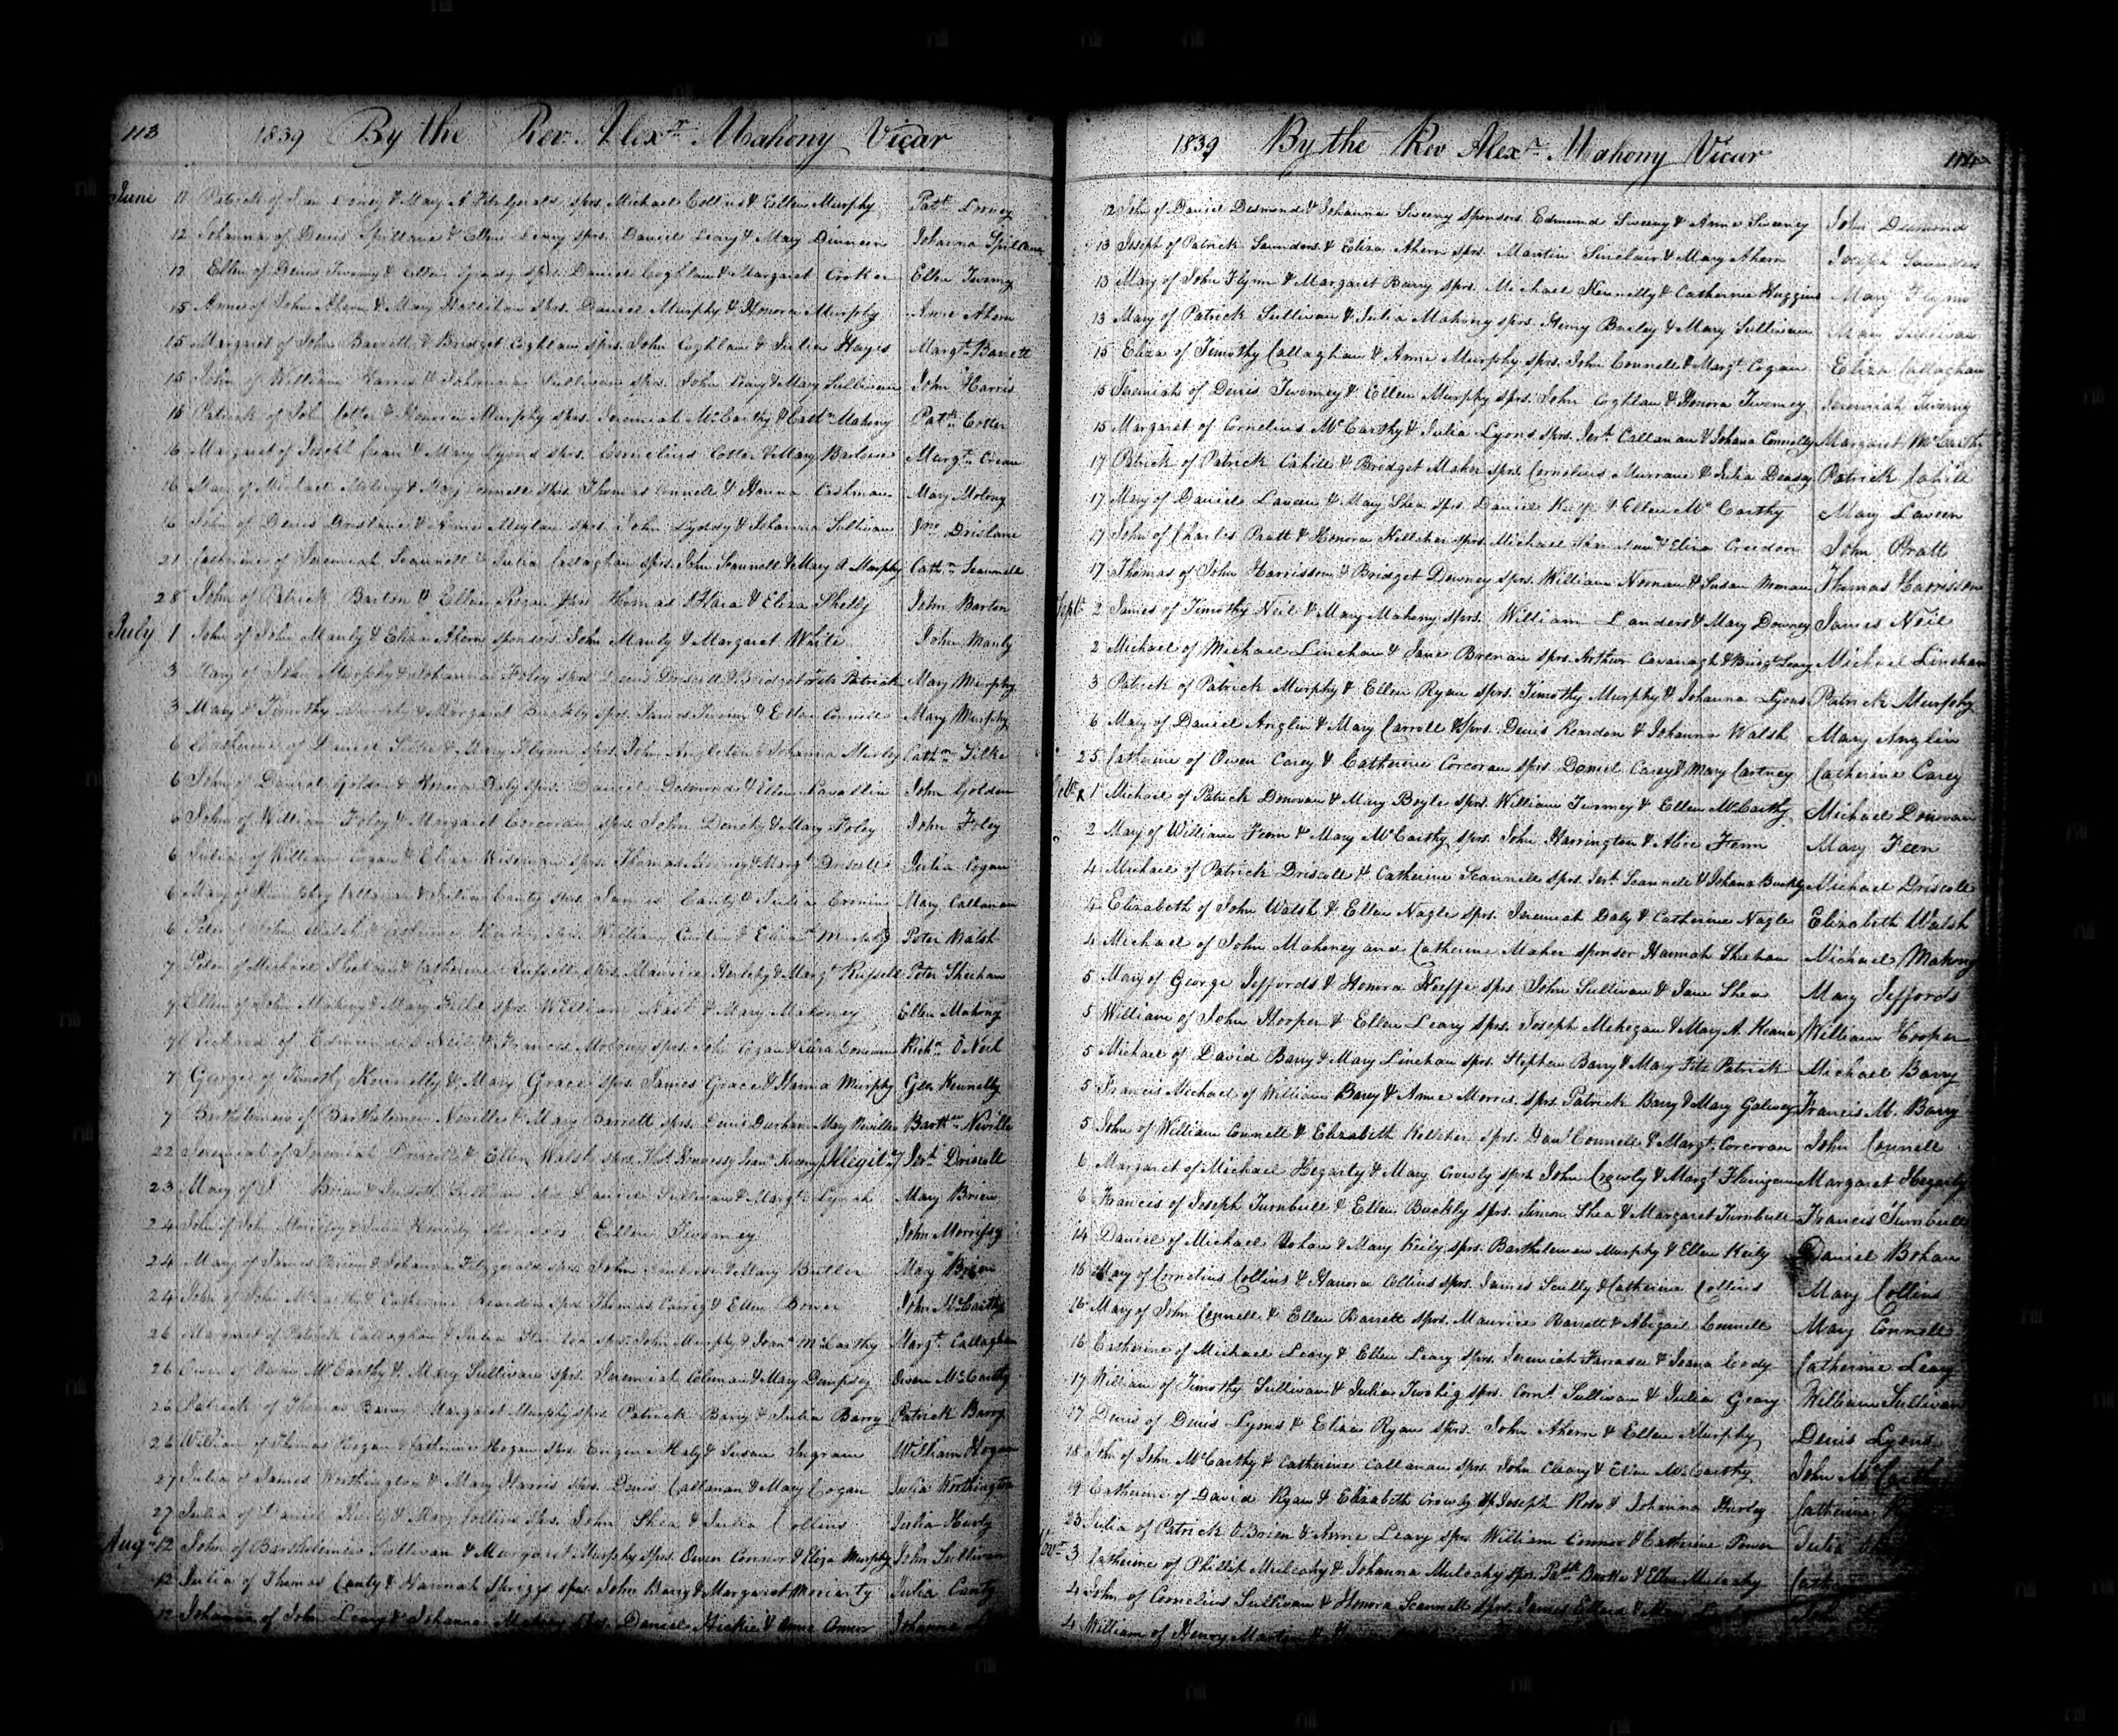 113 1839 By the Rev. Alexr. Mahony Vicar
June 11 Patrick of & Mary A Fitzgerald sprs. Michael Collins & Ellen Murphy Patk.
12 Johanna of Denis Spillane & Ellen Leary sprs. Daniel Leary & Mary Dinneen Johanna Spillane
12 Ellen of Denis Twomy & Ellen sprs. Daniel Coghlan & Margaret Croker Ellen Twomy
15 Anne of John Ahern & Mary sprs. Daniel Murphy & Honora Murphy Anne Ahern
15 Margaret of John Barrett & Bridget Coghlan sprs. John Coghlan & Julia Hayes Margt. Barrett
15 John of William Harris & Johanna Sullivan sprs. John Leary & Mary Sullivan John Harris
16 Patrick of Cotter & Honora Murphy sprs. Jeremiah McCarthy & Mahony Patk. Cotter
16 Margaret of Joseph & Mary Lyons sprs. Cornelius Cotter & Mary Margt.
16 Mary of Michael Molony & Mary Connell sprs. Thomas Connell & Hanna Cushman Mary Molony
16 John of Denis Drislane & Anne sprs. John Lyddy & Johanna Sullivan Jno. Drislane
21 Catherine of Jeremiah Scannell & Julia Callaghan sprs. John Scannell & Mary A Murphy Cathn. Scannell
28 John of Patrick Barton & Ellen Regan sprs. Thomas O'Hara & Eliza Shelly John Barton
July 1 John of John Manly & Eliza Ahern sponsors John Manly & Margaret White John Manly
3 Mary of John Murphy & Johanna Foley sprs. Denis Driscoll & Bridget Fitz Patrick Mary Murphy
3 Mary of Timothy Murphy & Margaret Buckly sprs. James Twomy & Ellen Connell Mary Murphy
6 Catherine of Daniel & Mary Flynn sprs. John Angleton & Johanna Cathn.
6 John of Daniel Golden & Honora Daly sprs. Daniel Desmond & Ellen Lavallin John Golden
6 John of William Foley & Margaret Corcoran sprs. John & Mary Foley John Foley
6 Julia of William Cogan & Eliza Wiseman sprs. Thomas & Margt. Driscoll Julia Cogan
6 Mary of Timothy Callanan & Julia Canty sprs. James Canty & Julia Cronin Mary Callanan
6 Peter of John Walsh & Catherine sprs. William & Murphy Peter Walsh
7 Peter of Michael Sheehan & Catherine Russell sprs. Maurice Herlihy & Margt. Russell Peter Sheehan
7 Ellen of John Mahony & Mary sprs. William & Mary Mahoney Ellen Mahony
7 Richard of Edmund O Neil & Frances Molony sprs. John Cogan & Eliza Donovan Richd. O Neil
7 George of Timothy Kennelly & Mary Grace sprs. James Grace & Hanna Murphy Geo. Kennelly
7 Bartholomew of Bartholomew Neville & Mary Barrett sprs. Denis Durham Mary Neville Barthw. Neville
22 Jeremiah of Jeremiah Driscoll & Ellen Walsh sprs. Illegite. Jerh. Driscoll
23 Mary of J Brien & Sullivan sprs. Daniel Sullivan & Margt. Lynch Mary Brien
24 John of John Morrissy & Julia Kennedy sponsors Ellen Twomey John Morrissy
24 Mary of James Brien & Johanna Fitzgerald sprs. John Ambrose & Mary Butler Mary Brien
24 John of John McCarthy & Catherine Reardon sprs. Thomas Carey & Ellen Bower John McCarthy
26 Margaret of Patrick Callaghan & Julia sprs. John Murphy & McCarthy Margt. Callaghan
26 Owen of Owen McCarthy & Mary Sullivan sprs. Jeremiah Coleman & Mary Dempsey Owen McCarthy
26 Patrick of Thomas Barry & Margaret Murphy sprs. Patrick Barry & Julia Barry Patrick Barry
26 William of Thomas Hogan & Catherine Hogan sprs. Eugene & Susan Ingram William Hogan
27 Julia of James Worthington & Mary Harris sprs. Denis Callanan & Mary Cogan Julia Worthington
27 Julia of Daniel Hurly & Mary Collins sprs. John Shea & Julia Collins Julia Hurly
Augt. 12 John of Bartholomew Sullivan & Margaret Murphy sprs. Owen Connor & Eliza Murphy John Sullivan
12 Julia of Thomas Canty & Hannah sprs. John Barry & Margaret Moriarty Julia Canty
12 Johanna of John Leary & Johanna Mahony sprs. Daniel Hickie & Anne Connor Johanna
1839 By the Rev Alexr. Mahony Vicar 114
12 John of Daniel Desmond & Johanna Sweeny sponsors Edmund Sweeny & Anne Sweeney John Desmond
13 Joseph of Patrick Saunders & Eliza Ahern sprs. Martin Sinclair & Mary Ahern Joseph Saunders
13 Mary of John Flynn & Margaret Barry sprs. Michael Kennelly & Catherine Huggins Mary Flynn
13 Mary of Patrick Sullivan & Julia Mahony sprs. Henry Barley & Mary Sullivan Mary Sullivan
15 Eliza of Timothy Callaghan & Anne Murphy sprs. John Connell & Margt. Cogan Eliza Callaghan
15 Jeremiah of Denis Twomey & Ellen Murphy sprs. John Coghlan & Honora Twomey Jeremiah Twomy
15 Margaret of Cornelius McCarthy & Julia Lyons sprs. Jerh. Callanan & Johana Connolly Margaret McCarthy
17 Patrick of Patrick Cahill & Bridget Maher sprs. Cornelius Murrane & Julia Deasy Patrick Cahill
17 Mary of Daniel Laveen & Mary Shea sprs. Daniel Keefe & Ellen McCarthy Mary Laveen
17 John of Charles Pratt & Honora Kelleher sprs. Michael & Eliza Creedon John Pratt
17 Thomas of John Harrisson & Bridget Downey sprs. William Noonan & Susan Noonan Thomas Harrisson
Septr. 2 James of Timothy Neil & Mary Mahony sprs. William Landers & Mary Downey James Neil
2 Michael of Michael Linehan & Jane Brenan sprs. Arthur Cavanagh & Bridgt. Leary Michael Linehan
3 Patrick of Patrick Murphy & Ellen Ryan sprs. Timothy Murphy & Johanna Lyons Patrick Murphy
6 Mary of Daniel Anglin & Mary Carroll sprs. Denis Reardon & Johanna Walsh Mary Anglin
25 Catherine of Owen Carey & Catherine Corcoran sprs. Daniel Carey & Mary Cartney Catherine Carey
Octr. 1 Michael of Patrick Donovan & Mary Boyle sprs. William Twomey & Ellen McCarthy Michael Donovan
2 Mary of William Feen & Mary McCarthy sprs. John Harrington & Alice Feen Mary Feen
4 Michael of Patrick Driscoll & Catherine Scannell sprs. Jerh. Scannell & Johana Buckly Michael Driscoll
4 Elizabeth of John Walsh & Ellen Nagle sprs. Jeremiah Daly & Catherine Nagle Elizabeth Walsh
4 Michael of John Mahoney and Catherine Maher sponsor Hannah Sheehan Michael Mahony
5 Mary of George Jeffords & Honora Keeffe sprs. John Sullivan & Jane Shea Mary Jeffords
5 William of John Hooper & Ellen Leary sprs. Joseph Mehegan & Mary A. Keane William Hooper
5 Michael of David Barry & Mary Linehan sprs. Stephen Barry & Mary Fitz Patrick Michael Barry
5 Francis Michael of William Barry & Anne Morris sprs. Patrick Barry & Mary Galwey Francis M. Barry
5 John of William Connell & Elizabeth Kelleher sprs. Danl. Connell & Margt. Corcoran John Connell
6 Margaret of Michael Hegarty & Mary Crowly sprs. John Crowly & Margt. Margaret Hegarty
6 Francis of Joseph Turnbull & Ellen Buckly sprs. Simon Shea & Margaret Turnbull Francis Turnbull
14 Daniel of Michael Bohan & Mary Keily sprs. Bartholomew Murphy & Ellen Keily Daniel Bohan
16 Mary of Cornelius Collins & Hanora Collins sprs. James Scully & Catherine Collins Mary Collins
16 Mary of John Connell & Ellen Barrett sprs. Maurice Barrett & Abigail Connell Mary Connell
16 Catherine of Michael Leary & Ellen Leary sprs. Jeremiah Farrasee & Joana Cody Catherine Leary
17 William of Timothy Sullivan & Julia Twohig sprs. Corns. Sullivan & Julia Geary William Sullivan
17 Denis of Denis Lyons & Eliza Ryan sprs. John Ahern & Ellen Murphy Denis Lyons
18 John of John McCarthy & Catherine Callanan sprs. John Cleary & Ellen McCarthy John McCarthy
19 Catherine of David Ryan & Elizabeth Crowly sp. Joseph Ross & Johanna Hurley Catherine
23 Julia of Patrick O'Brien & Anne Leary sprs. William Connor & Catherine Power Julia
Novr. 3 Catherine of Phillip Mulcahy & Johanna Mulcahy sprs. Patk. Burke & Ellen Mulcahy
4 John of Cornelius Sullivan & Honora Scannell sprs. James &
4 William of Henry Martin &